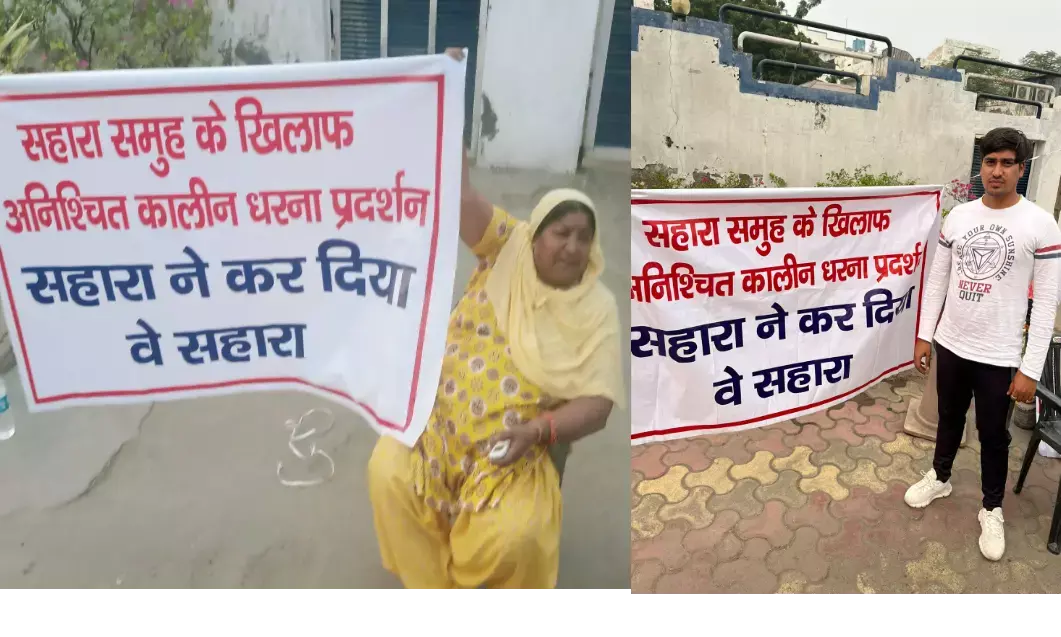 सहारा समुह के खिलाफ
अनिश्चित कालीन धरना प्रदर्शन
सहारा ने कर दिया
वे सहारा
सहारा समुह के खिलाफ
अनिश्चित कालीन धरना प्रदर्श
सहारा ने कर दिया
वे सहारा
YOUR OWN SUNSHINE
NEVER
QUIT